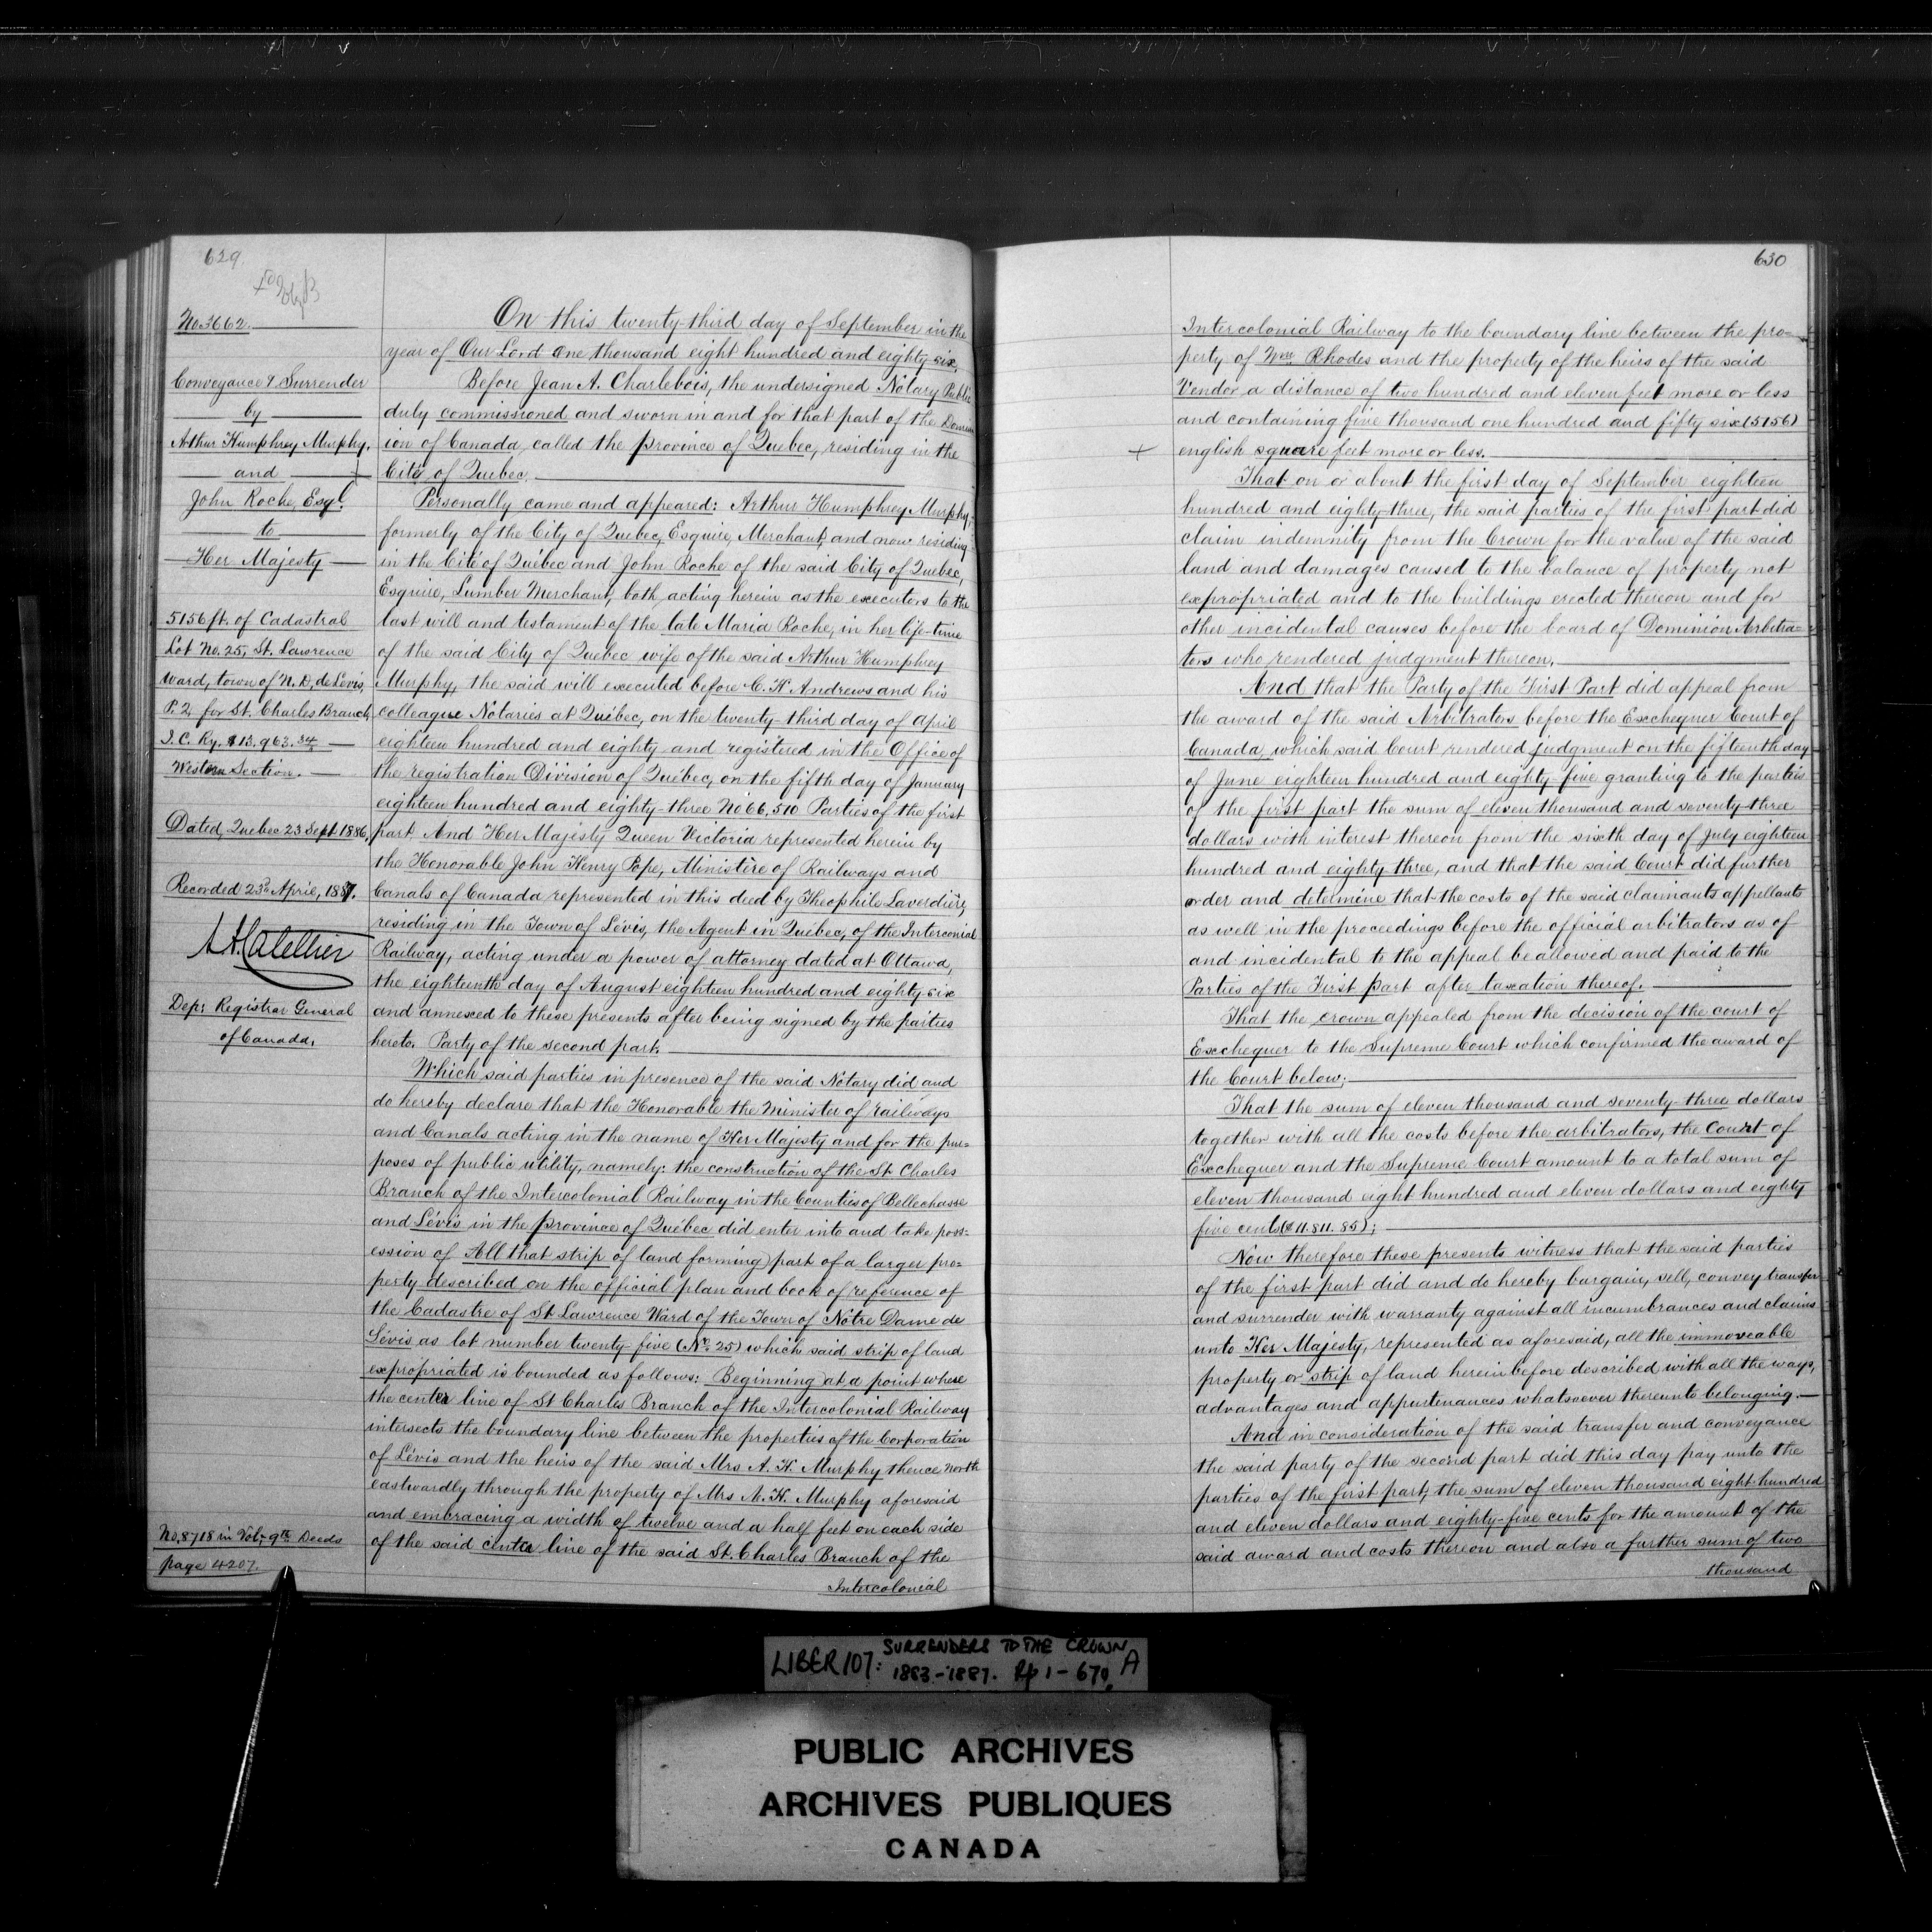 629.
No. 3662.
Conveyance & Surrender
by
Arthur Humphrey Murphy,
and
John Roche, Esqr.
to
Her Majesty
5156 ft. of Cadastral
Lot No. 25, St. Lawrence
Ward, town of N. D. de Levis,
P. 2, for St. Charles Branch,
I. C. Ry. $13.963.34
Western Section.
Dated, Quebec 23 Sept. 1886,
Recorded 23rd April, 1887.
Dep: Registrar General
of Canada.
No. 8718 in Vol: 9th Deeds
page 4207.
On this twenty-third day of September in the
year of Our Lord One thousand eight hundred and eighty-six,
Before Jean A. Charlebois, the undersigned Notary Public
duly commissioned and sworn in and for that part of the Domin
ion of Canada, called the province of Quebec, residing in the
Cité of Quebec,
Personally came and appeared: Arthur Humphrey Murphy,
formerly of the City of Quebec, Esquire, Merchant, and now residing
in the Cité of Québec and John Roche of the said City of Quebec,
Esquire, Lumber Merchant, both acting herein as the executors to the
last will and testament of the late Maria Roche, in her life-time
of the said City of Quebec wife of the said Arthur Humphrey
Murphy, the said will executed before C. H Andrews and his
colleague Notaries at Québec, on the twenty-third day of april
eighteen hundred and eighty and registered in the Office of
the registration Division of Québec, on the fifth day of January
eighteen hundred and eighty-three No 66,510 Parties of the first
part. And Her Majesty Queen Victoria represented herein by
the Honorable John Henry Pope, Ministère of Railways and
Canals of Canada represented in this deed by Theophile Laverdière,
residing in the Town of Lévis, the Agent in Québec, of the Interconial
Railway, acting under a power of attorney dated at Ottawa,
the eighteenth day of August eighteen hundred and eighty-six
and annexed to these presents after being signed by the parties
hereto. Party of the second part.
Which said parties in presence of the said Notary did and
do hereby declare that the Honorable the Minister of railways
and Canals acting in the name of Her Majesty and for the pur=
poses of public utility, namely: the construction of the St. Charles
Branch of the Intercolonial Railway in the Counties of Bellechasse
and Lévis in the province of Québec did enter into and take poss-
ession of All that strip of land forming part of a larger pro=
perty described on the official plan and book of reference of
the Cadastre of St Lawrence Ward of the Town of Nôtre Dame de
Lévis as lot number twenty-five (No. 25) which said strip of land
expropriated is bounded as follows: Beginning at a point where
the center line of St Charles Branch of the Intercolonial Railway
intersects the boundary line between the properties of the Corporation
of Lévis and the heirs of the said Mrs A. H. Murphy thence north
eastwardly through the property of Mrs A. H. Murphy aforesaid
and embracing a width of twelve and a half feet on each side
of the said center line of the said St. Charles Branch of the
Intercolonial
630
Intercolonial Railway to the boundary line between the pro=
perty of Wm. Rhodes and the property of the heirs of the said
Vendor a distance of two hundred and eleven feet more or less
and containing five thousand one hundred and fifty six (5156)
english square feet more or less.
That on or about the first day of September eighteen
hundred and eighty-three, the said parties of the first part did
claim indemnity from the Crown for the value of the said
land and damages caused to the balance of property not
expropriated and to the buildings erected thereon and for
other incidental causes before the board of Dominion Arbitra=
tors who rendered judgment thereon.
And that the Party of the First Part did appeal from
the award of the said Arbitrators before the Exchequer Court of
Canada, which said Court rendered judgment on the fifteenth day
of June eighteen hundred and eighty-five granting to the parties
of the first part the sum of eleven thousand and seventy-three
dollars with interest thereon from the sixth day of July eighteen
hundred and eighty three, and that the said Court did further
order and determine that the costs of the said claimants appellants
as well in the proceedings before the official arbitrators as of
and incidental to the appeal be allowed and paid to the
Parties of the First part after taxation thereof.
That the crown appealed from the decision of the court of
Exchequer to the Supreme Court which confirmed the award of
the Court below;
That the sum of eleven thousand and seventy-three dollars
together with all the costs before the arbitrators, the Court of
Exchequer and the Supreme Court amount to a total sum of
eleven thousand eight hundred and eleven dollars and eighty
five cents ($11.811.85);
Now therefore these presents witness that the said parties
of the first part did and do hereby bargain, sell, convey transfer
and surrender with warranty against all incumbrances and claims
unto Her Majesty, represented as aforesaid, all the immoveable
property or strip of land herein before described with all the ways,
advantages and appurtenances whatsoever thereunto belonging.
And in consideration of the said transfer and conveyance
the said party of the second part did this day pay unto the
parties of the first part, the sum of eleven thousand eight hundred
and eleven dollars and eighty-five cents for the amount of the
said award and costs thereon and also a further sum of two
thousand
LIBER 107: SURRENDERS TO THE CROWN
1883-1887. Pp 1-670, A
PUBLIC ARCHIVES
ARCHIVES PUBLIQUES
CANADA